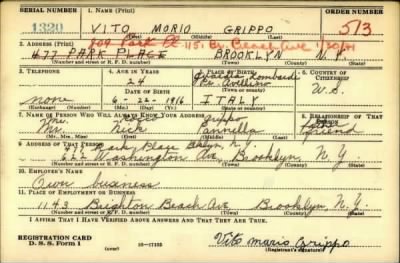 SERIAL NUMBER 1. NAME (Print) ORDER NUMBER
1320 VITO MORIO GRIPPO 513
(First) (Middle) (Last)
2. ADDRESS (Print)
609 Park Pl 1151 Br. Beach Ave 1/30/41
477 PARK PLACE BROOKLYN N.Y.
(Number and street or R. F. D. number) (Town) (County) (State)
3. TELEPHONE 4. AGE IN YEARS 5. PLACE OF BIRTH 6. COUNTRY OF CITIZENSHIP
24 Lombardi
Avellino
none DATE OF BIRTH U.S.
6-22-1916 ITALY
(Exchange) (Number) (Mo.) (Day) (Yr.) (State or country)
7. NAME OF PERSON WHO WILL ALWAYS KNOW YOUR ADDRESS 8. RELATIONSHIP OF THAT PERSON
Mr. Grippo
Mr. Nick Pannella friend
(Mr., Mrs., Miss) (First) (Middle) (Last)
9. ADDRESS OF THAT PERSON
Park Place Bklyn, N.Y.
622 Washington Ave, Brooklyn, N. Y.
(Number and street or R. F. D. number) (Town) (County) (State)
10. EMPLOYER'S NAME
Own business
11. PLACE OF EMPLOYMENT OR BUSINESS
1143 Brighton Beach Ave Brooklyn, N.Y.
(Number and street or R. F. D. number) (Town) (County) (State)
I AFFIRM THAT I HAVE VERIFIED ABOVE ANSWERS AND THAT THEY ARE TRUE.
REGISTRATION CARD
D. S. S. Form 1 16-17105 Vito Mario Grippo
(Registrant's signature)